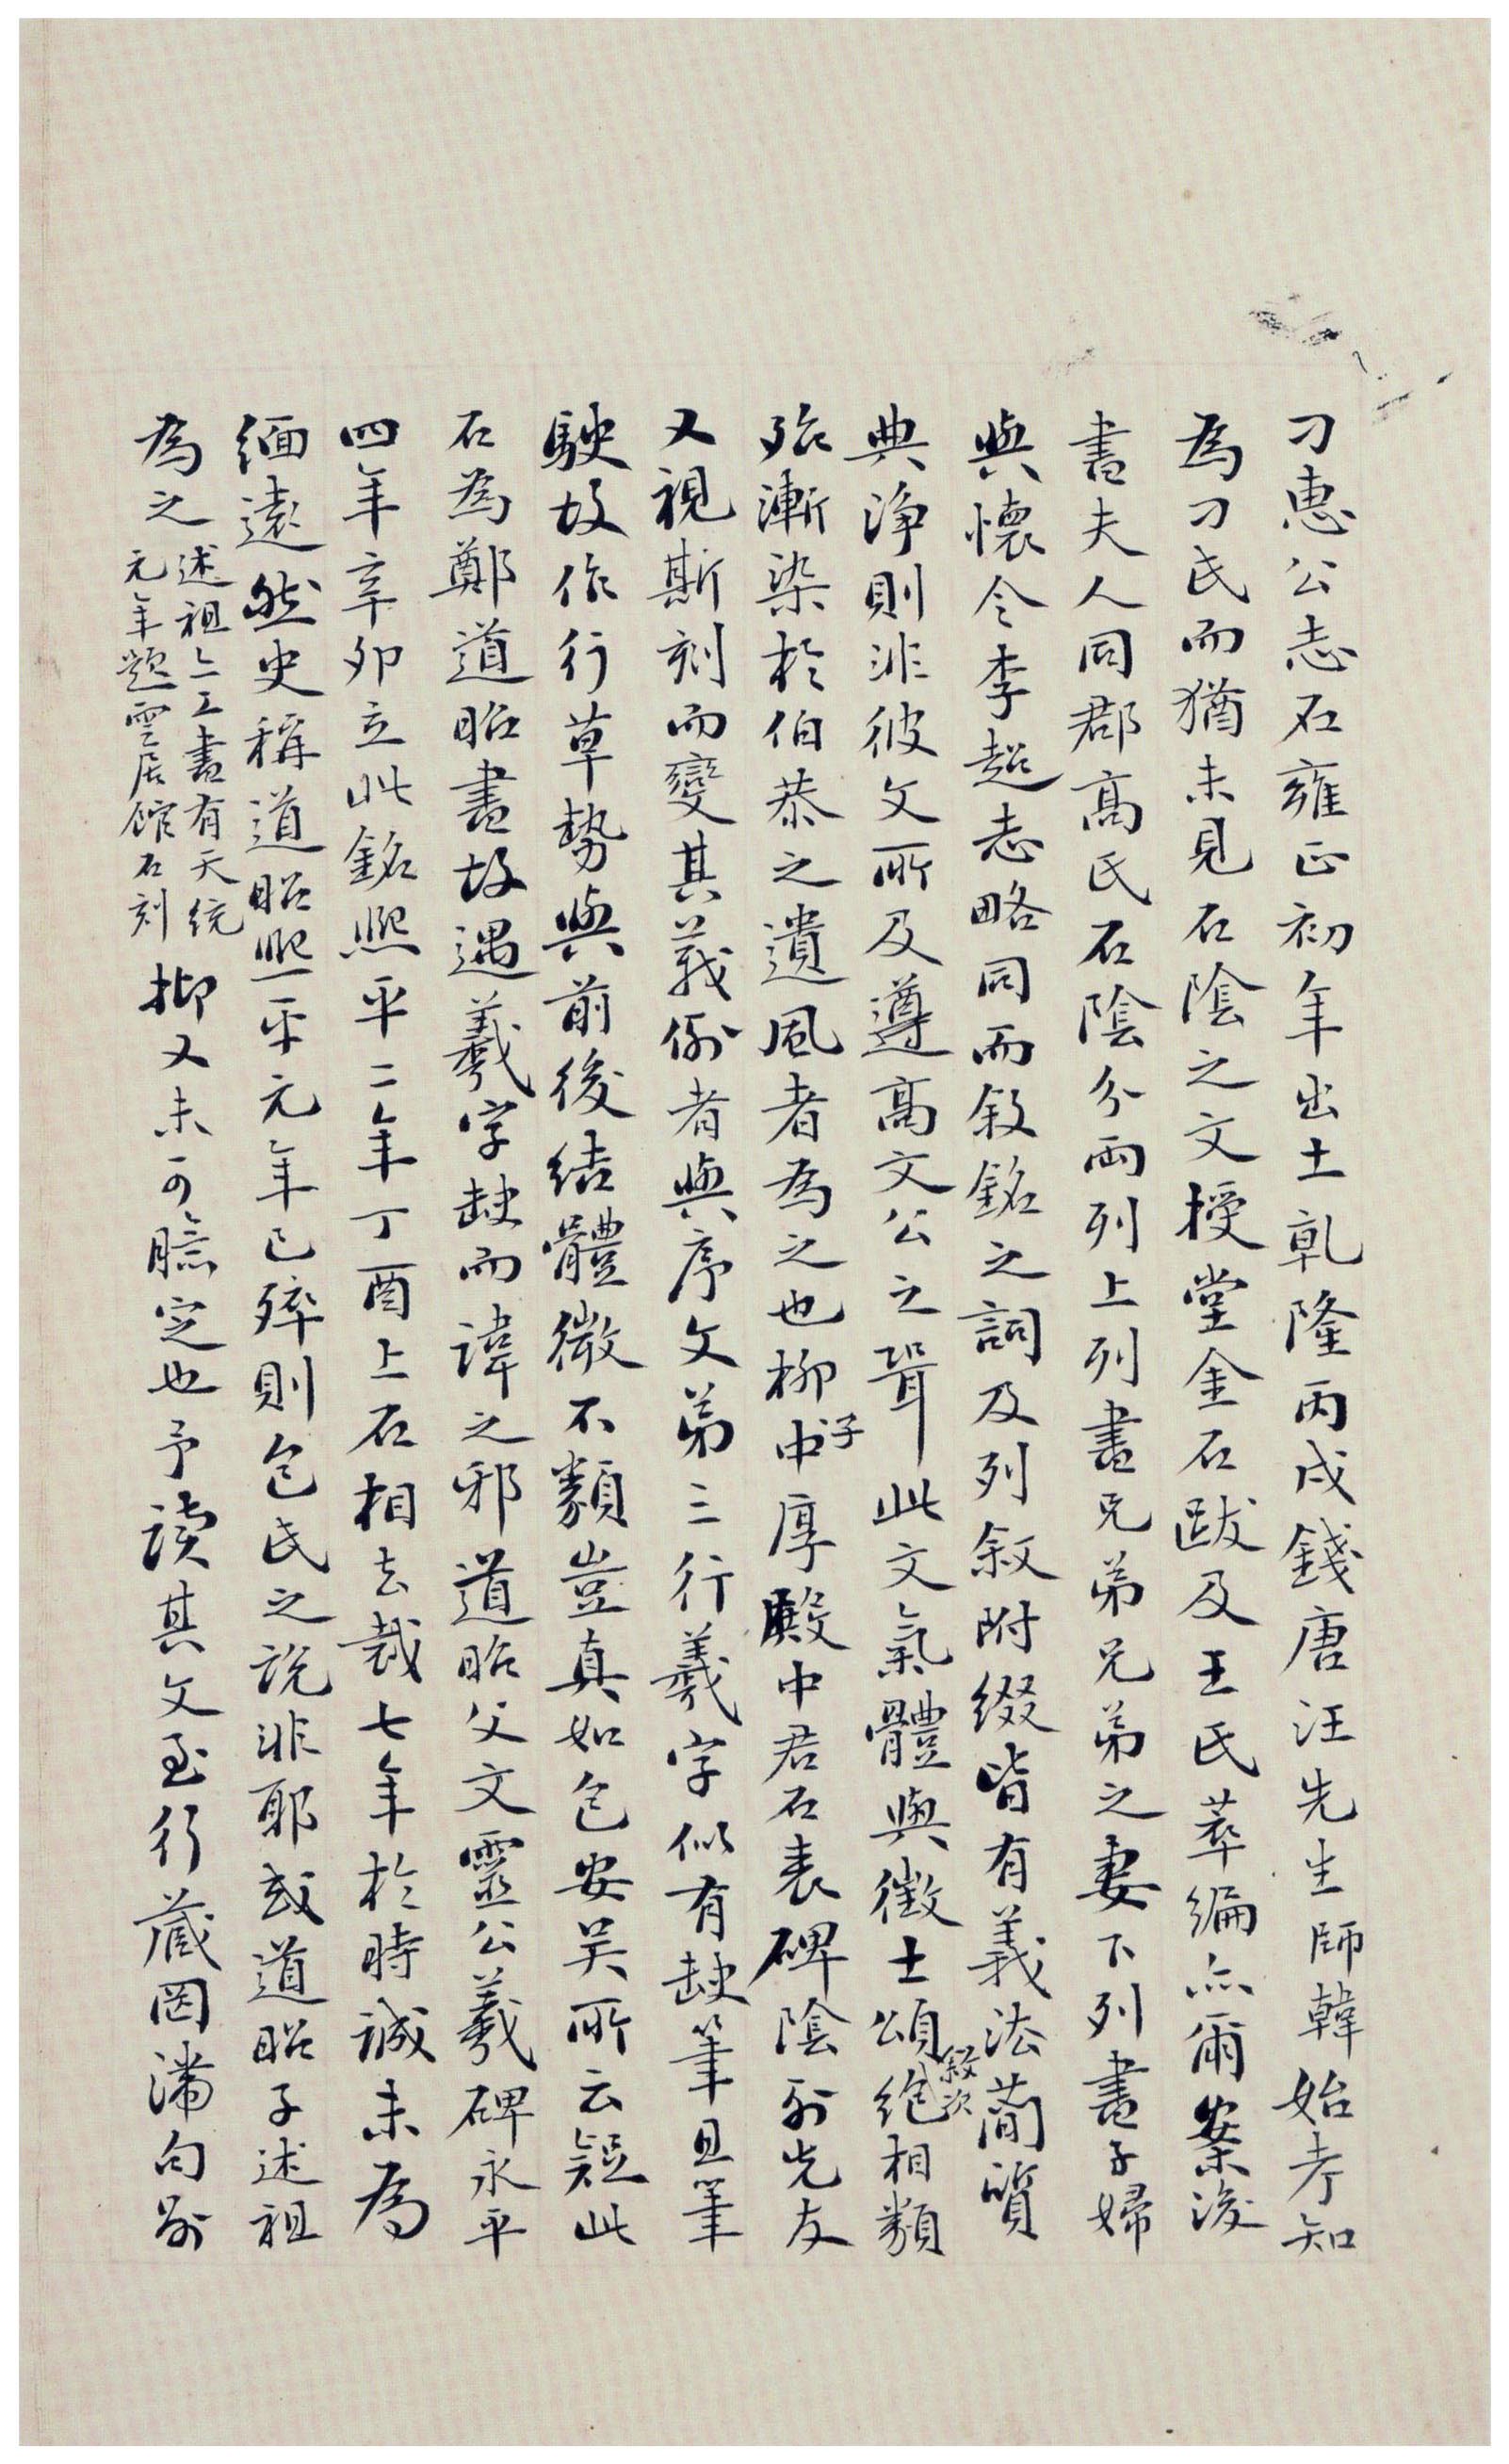 刁惠公志石雍正初年出土乹隆丙戌錢唐汪先生師韓始考知
為刁氏而猶未見石陰之文授堂金石跋及王氏萃編亦爾案後
書夫人同郡高氏石陰分兩列上列書兄弟兄弟之妻下列書子婦
與懷令李超志略同而叙銘之詞及列叙附綴皆有義法蕳質
典淨則非彼文所及遵高文公之聟此文氣體與徵士頌叙次絕相類
殆漸染於伯恭之遺風者為之也柳子厚殿中君石表碑陰列先友
又視斯刻而變其義例者與序文弟三行羲字似有缺筆且筆
駛故作行草勢與前後結體微不類豈真如包安吴所云疑此
石為鄭道昭書故遇羲字缺而諱之邪道昭父文靈公羲碑永平
四年辛卯立此銘熙平二年丁酉上石相去裁七年於時誠未為
緬遠然史稱道昭熙平元年已殍則包氏之説非耶或道昭子述祖
為之
述祖亦工書有天統
元年題雲居館石刻
抑又未可臆定也予讀其文至行藏罔滯句別